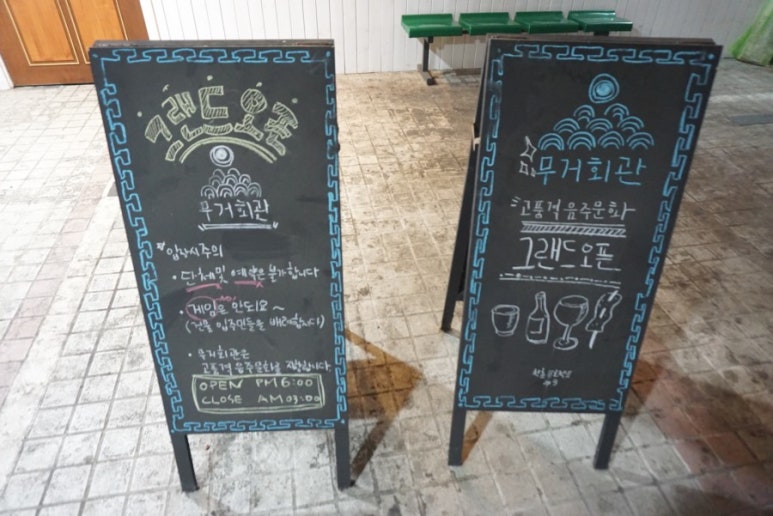 그랜드오픈
무거회관
입장시주의
• 단체및 예약은 불가합니다
• 게임은 안되요~
(건물 입주민들을 배려합시다)
• 무거회관은
고품격 음주문화를 지향합니다
OPEN PM 6:00
CLOSE AM 03:00
무거회관
고품격 음주문화
그랜드오픈